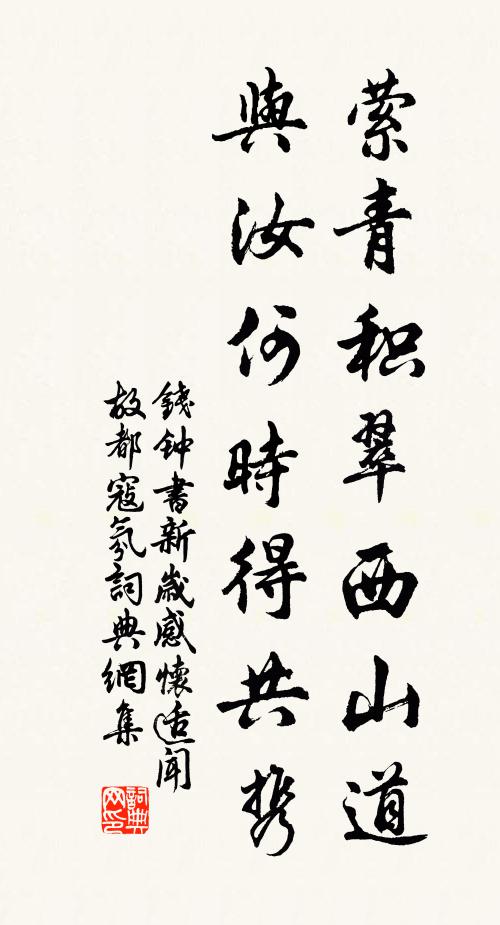 萦青积翠西山道
與汝何時得共携
錢钟書新歲感懷适聞
故都寇氛詞典網集
詞典网印